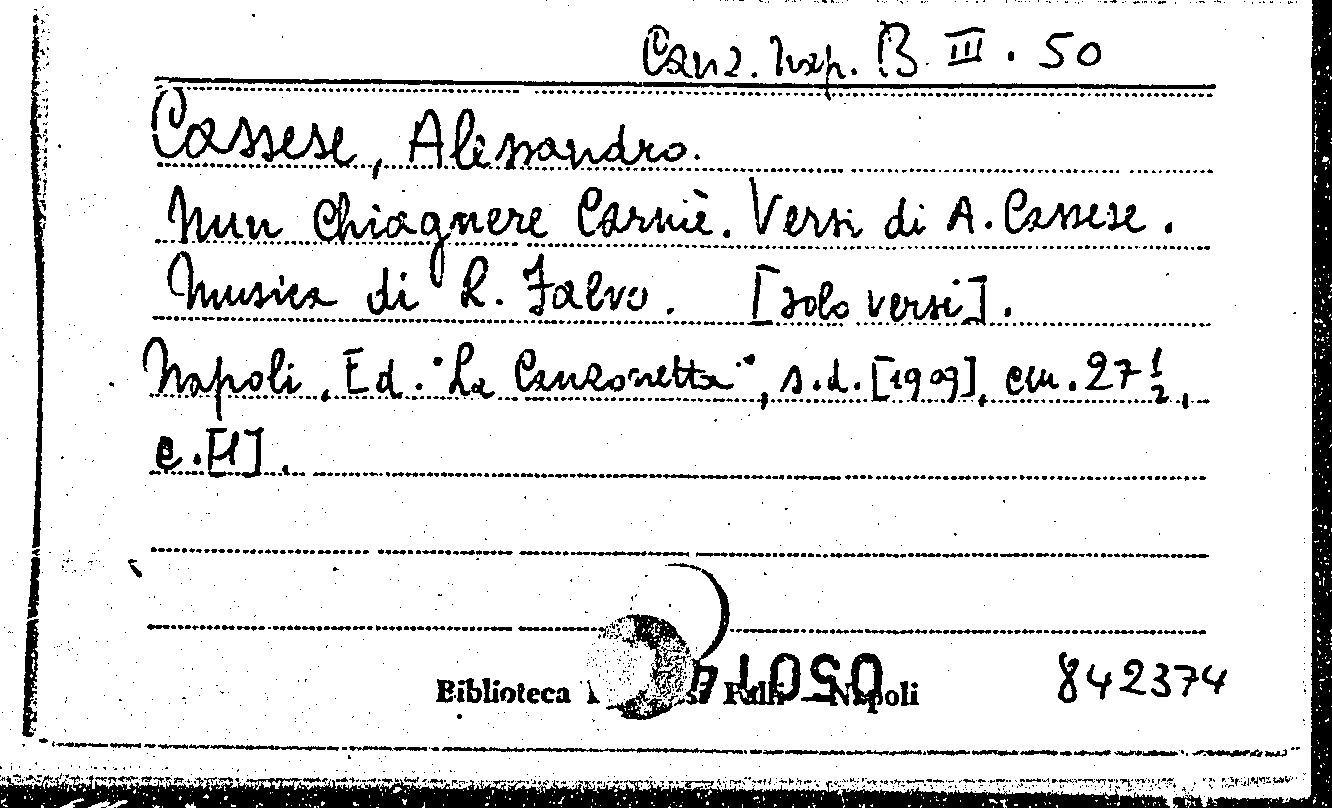 Canz. Nap. B III. 50
Cassese, Alessandro.
Nun Chiagnere Carmè. Versi di A. Cassese.
Musica di R. Falvo. [solo versi].
Napoli, Ed. "La Canzonetta", s.d. [1909], cm. 27 1/2,
c. [1].
Biblioteca Napoli
842374